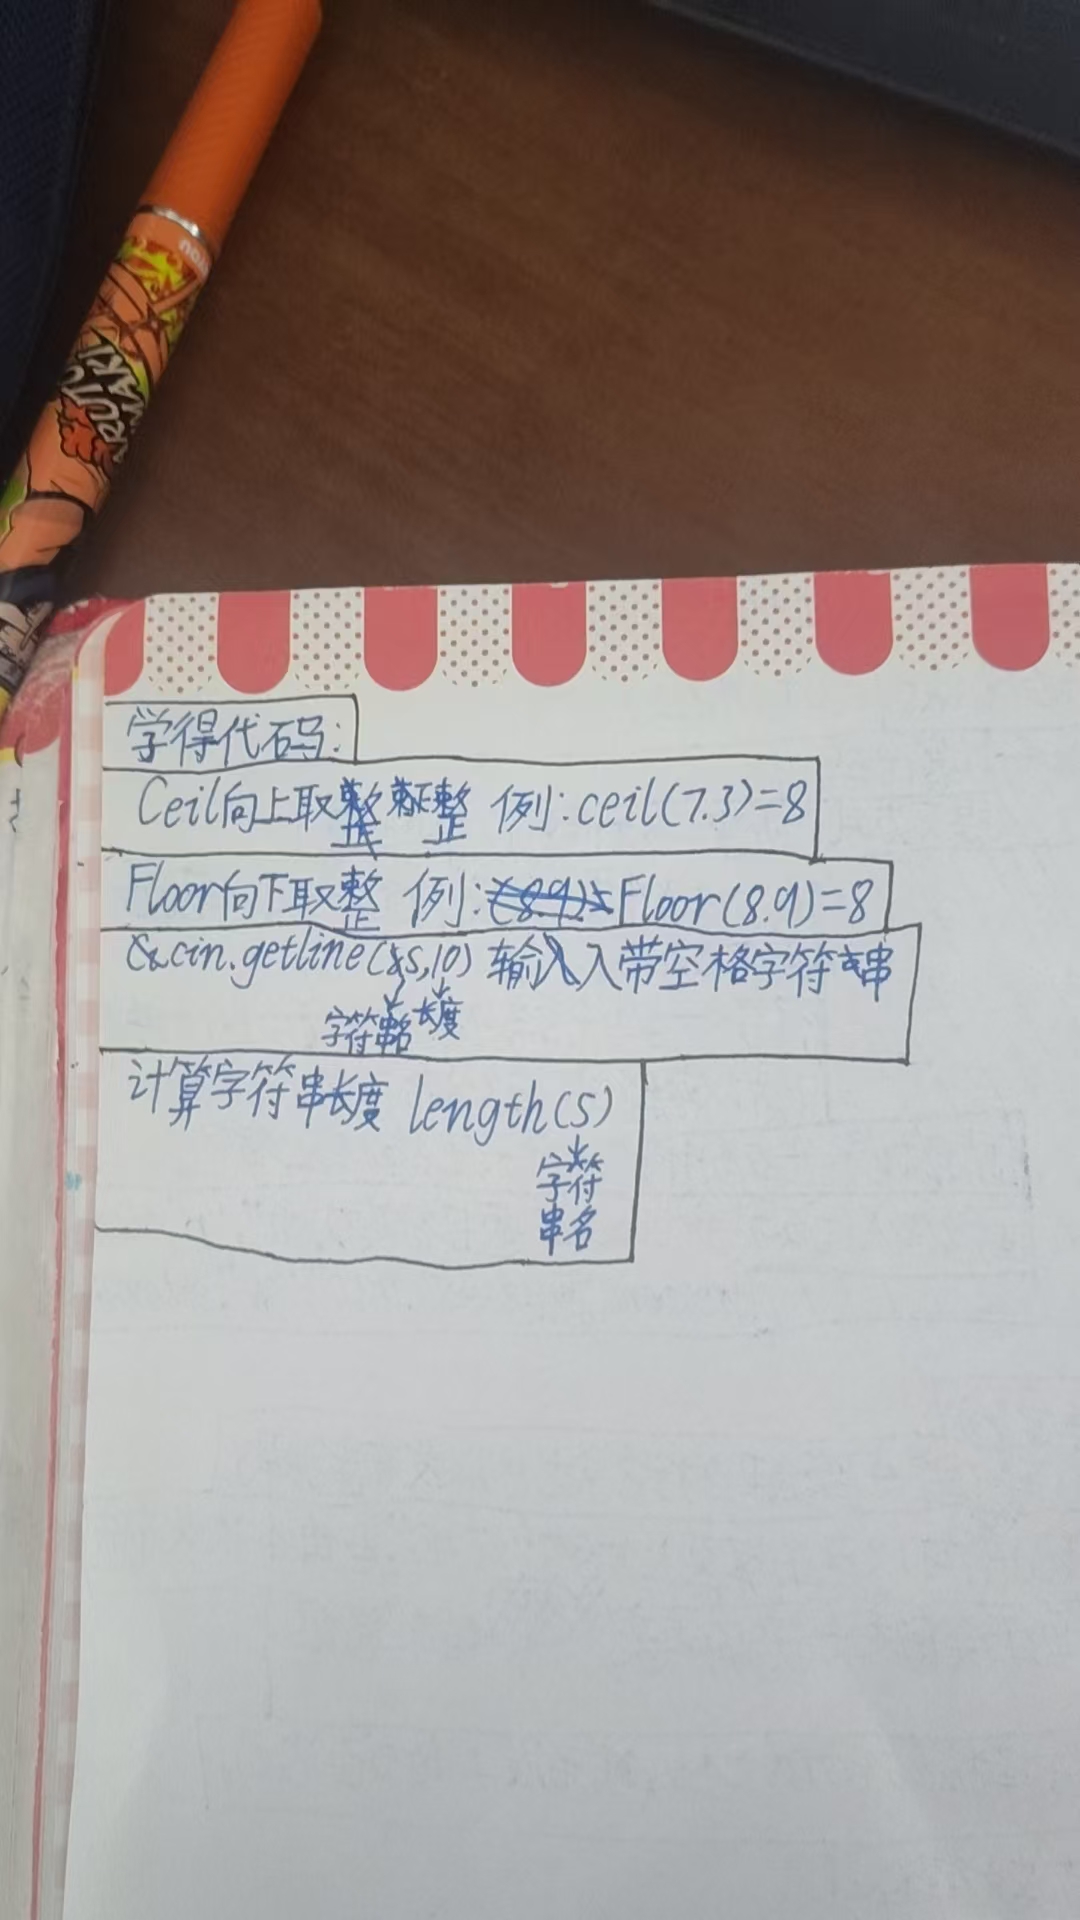 NARUTO
UZUMAKI
学得代码:
Ceil向上取整 整 例:ceil(7.3)=8
Floor向下取整 例:Floor(8.9)=8
cin.getline(s,10) 输入带空格字符串
字符串名 长度
计算字符串长度 length(s)
字符
串名